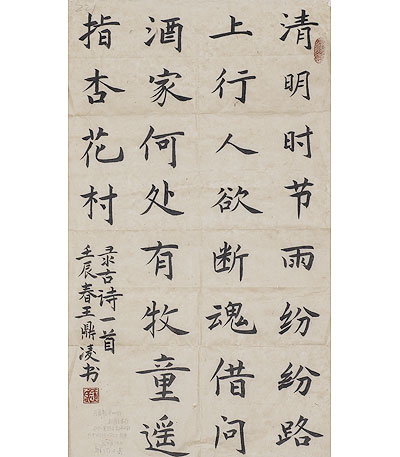 清明时节雨纷纷路
上行人欲断魂借问
酒家何处有牧童遥
指杏花村
录古诗一首
壬辰春王鼎凌书